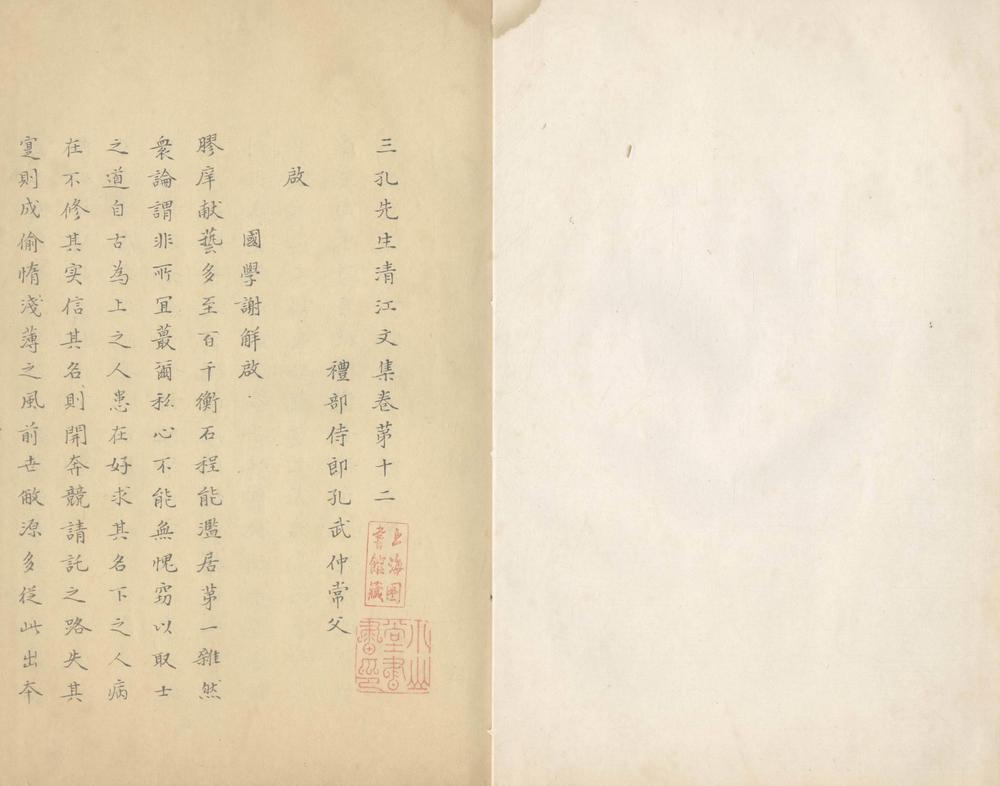 三孔先生清江文集卷苐十二
禮部侍郎孔武仲常父
啟
國學謝解啟
膠庠献藝多至百千衡石程能濫居苐一雜然
衆論謂非所冝蕞爾私心不能無愧竊以取士
之道自古為上之人患在好求其名下之人病
在不修其实信其名則開奔競請託之路失其
寔則成偷惰淺薄之風前世敝源多從此出夲
上海圖
書館藏